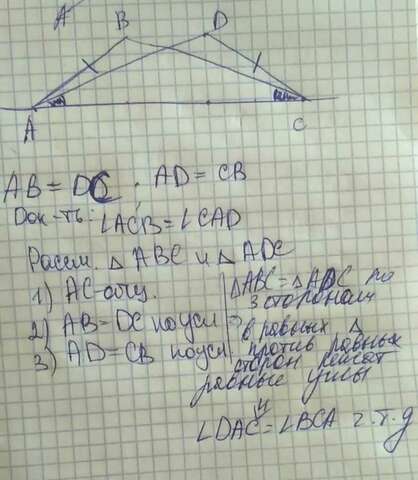 A
B D
A C
AB = DC; AD = CB
Док-ть: ∠ACB = ∠CAD
Рассм. △ ABC и △ ADC
1) AC-общ.
2) AB = DC по усл
3) AD = CB по усл
△ABC = △ADC по
3 сторонам
в равных △
против равных
сторон лежат
равные углы
∠DAC = ∠BCA ч.т.д